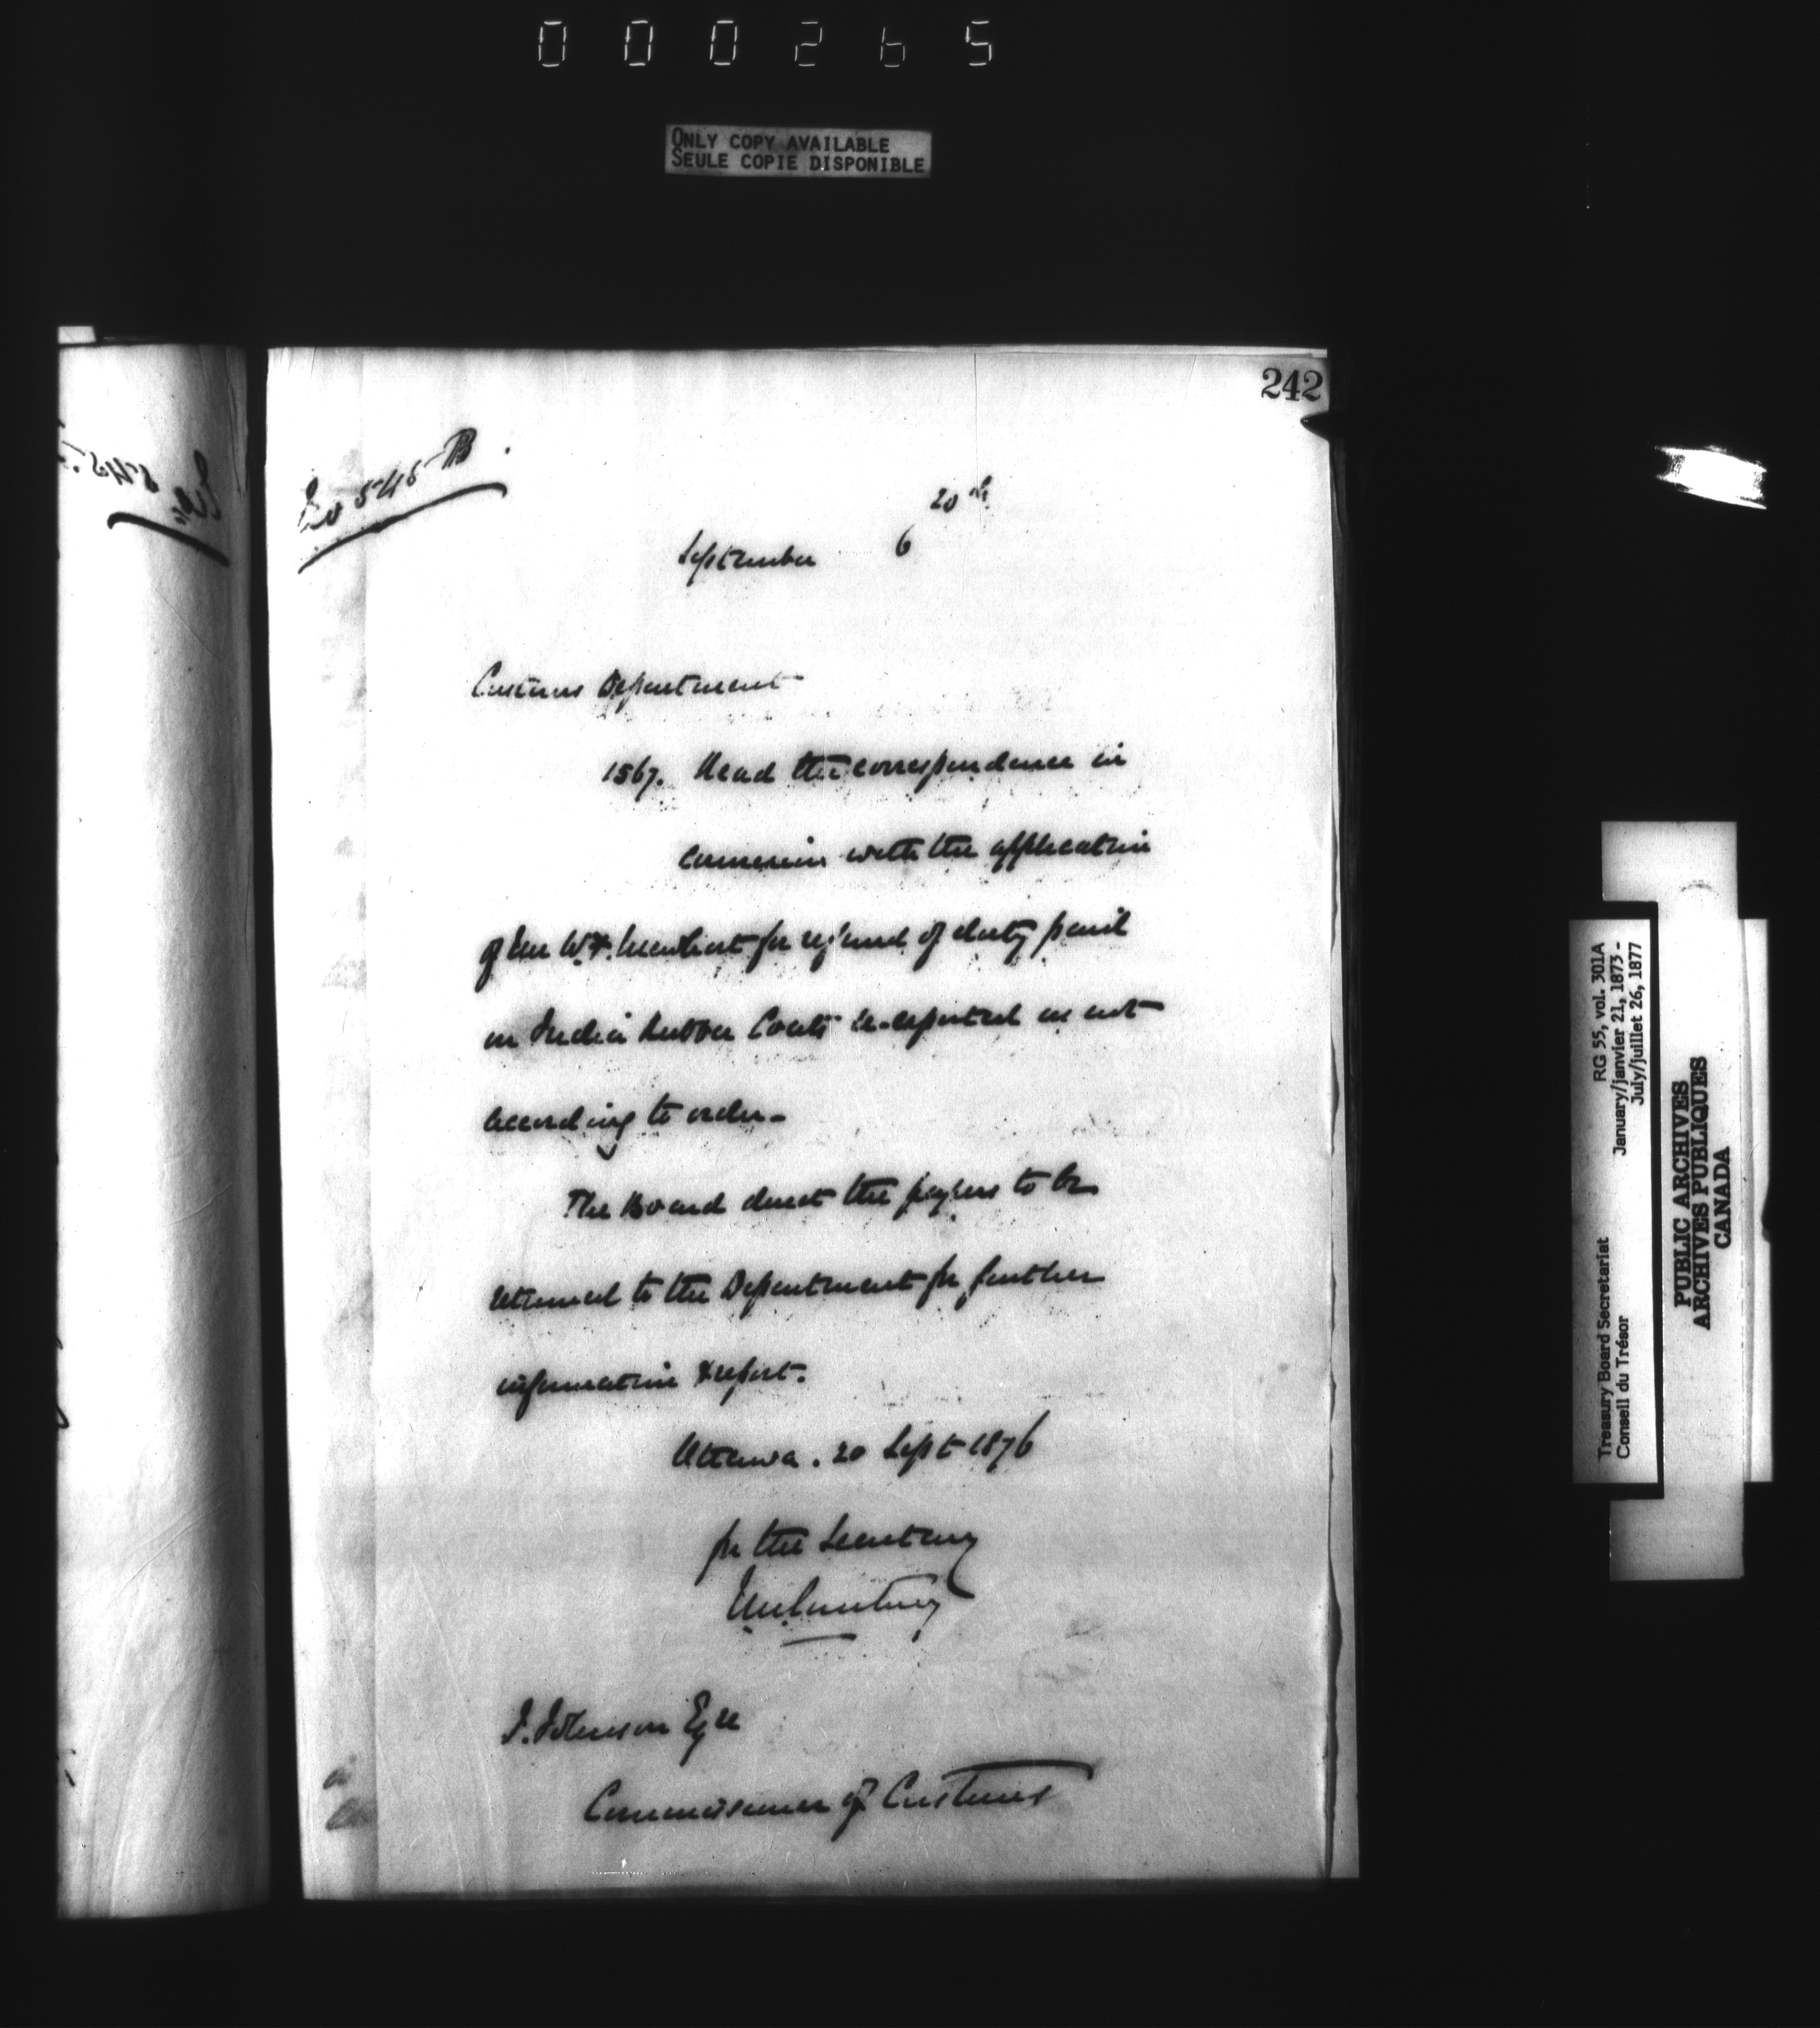 000265
ONLY COPY AVAILABLE
SEULE COPIE DISPONIBLE
242
545 B.
20th
September 6
Customs Department
1567. Read the correspondence in
connexion with the application
of W.F. for refund of duty paid
on India Rubber Coats re-exported as not
according to order.
The Board direct the papers to be
returned to the Department for further
information & report.
Ottawa. 20 Sept 1876
for the Secretary
J. Johnson Esqre
Commissioner of Customs
RG 55, vol. 301A
January/janvier 21, 1873 -
July/juillet 26, 1877
Treasury Board Secretariat
Conseil du Trésor
PUBLIC ARCHIVES
ARCHIVES PUBLIQUES
CANADA